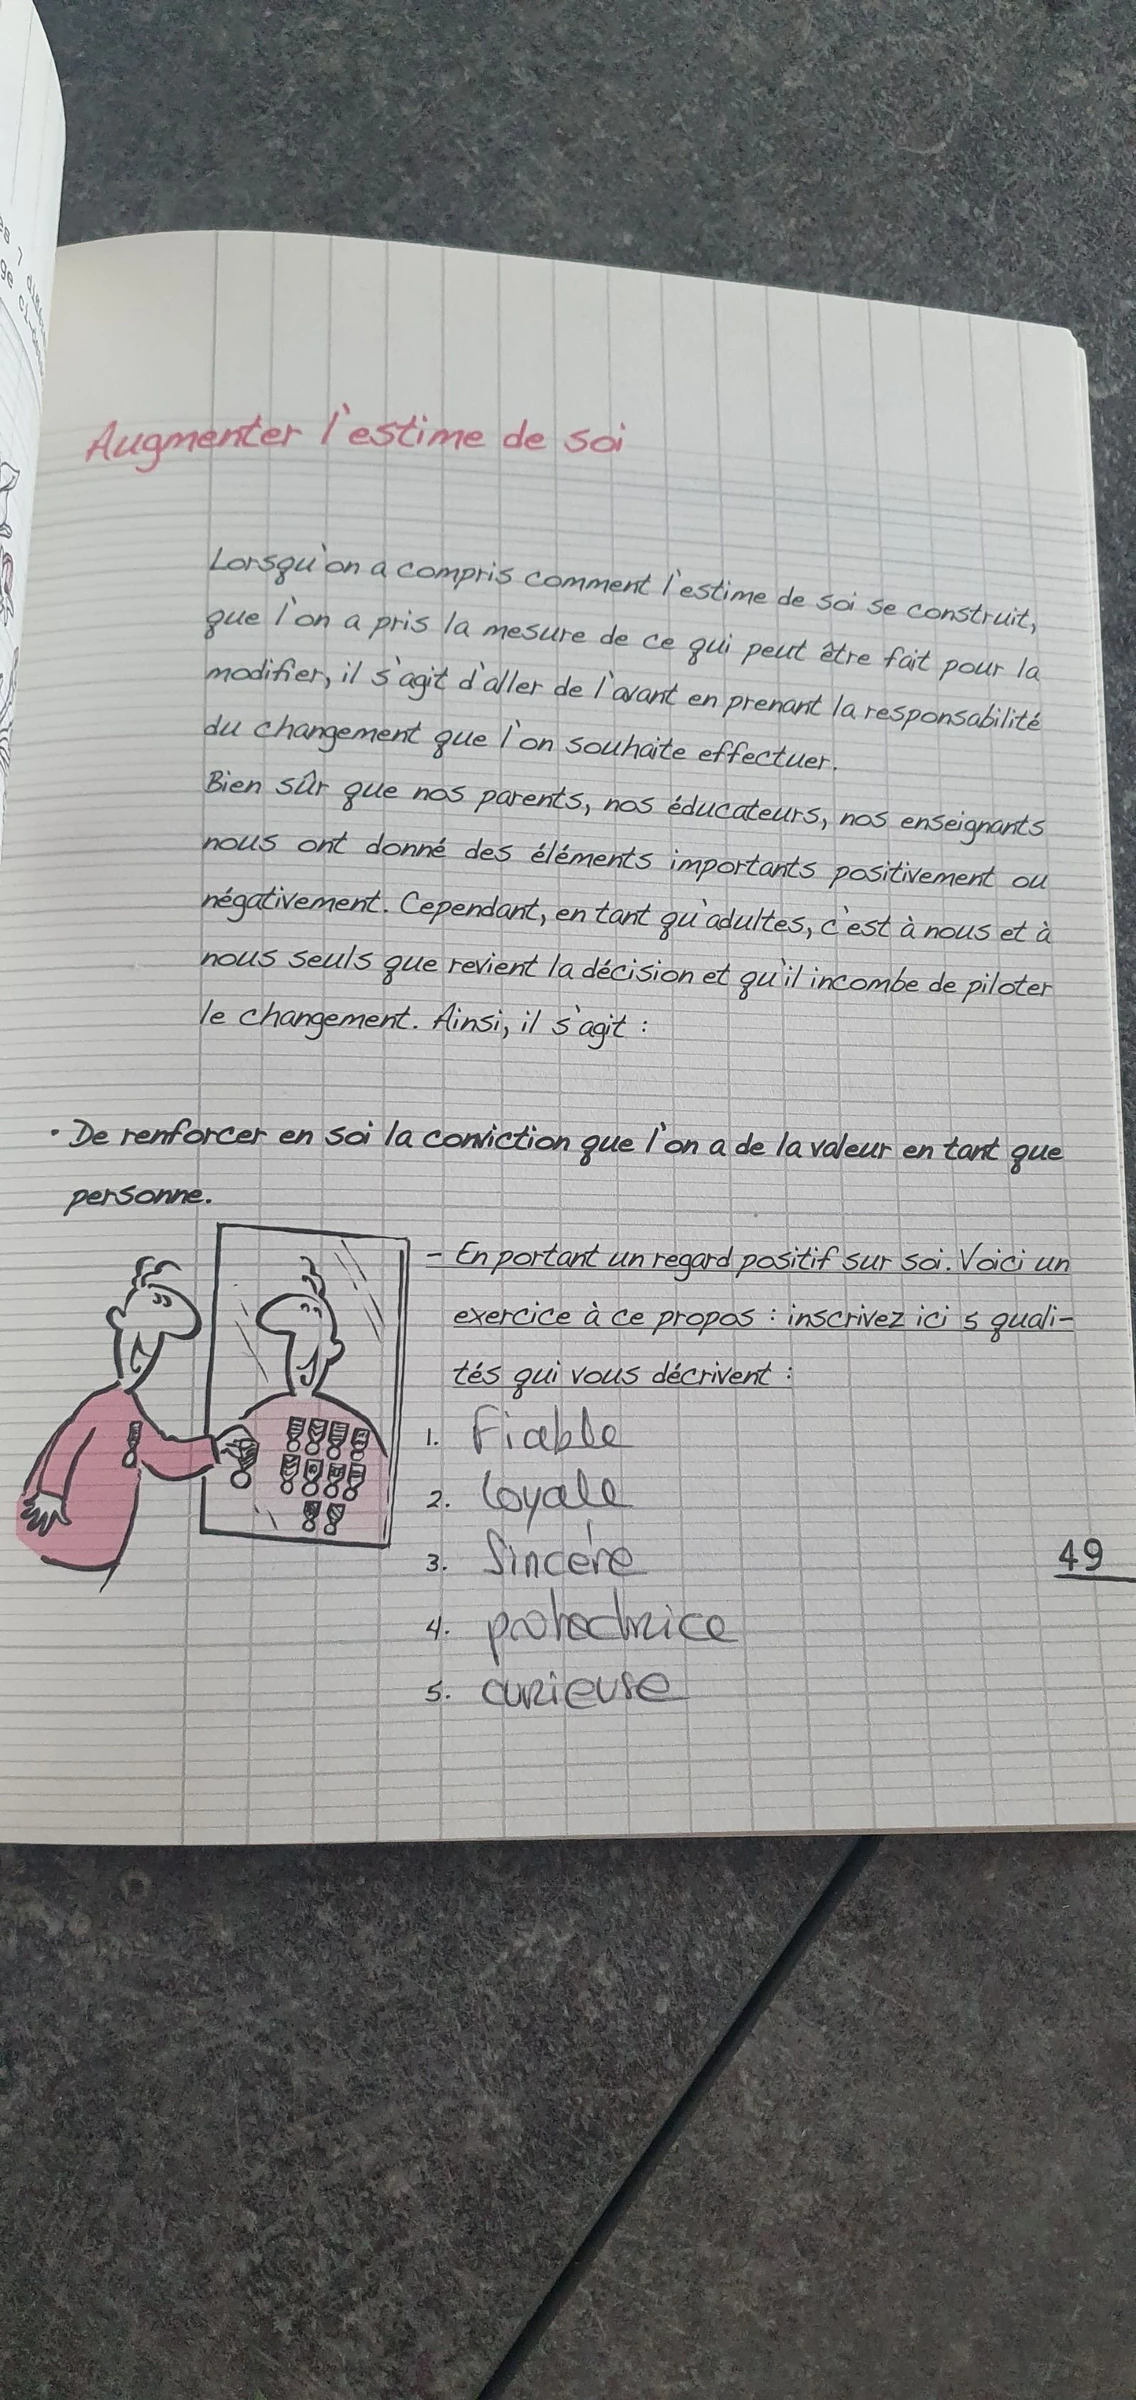 Augmenter l'estime de soi
Lorsqu'on a compris comment l'estime de soi se construit,
que l'on a pris la mesure de ce qui peut être fait pour la
modifier, il s'agit d'aller de l'avant en prenant la responsabilité
du changement que l'on souhaite effectuer.
Bien sûr que nos parents, nos éducateurs, nos enseignants
nous ont donné des éléments importants positivement ou
négativement. Cependant, en tant qu'adultes, c'est à nous et à
nous seuls que revient la décision et qu'il incombe de piloter
le changement. Ainsi, il s'agit :
• De renforcer en soi la conviction que l'on a de la valeur en tant que
personne.
- En portant un regard positif sur soi. Voici un
exercice à ce propos : inscrivez ici 5 quali-
tés qui vous décrivent :
1. Fiable
2. Loyale
3. Sincére
4. protectrice
5. curieuse
49